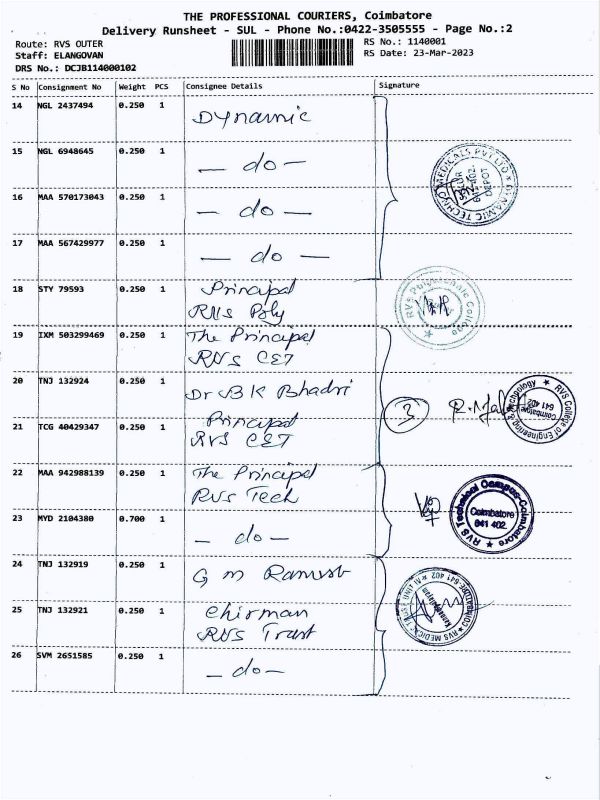 THE PROFESSIONAL COURIERS, Coimbatore
Delivery Runsheet - SUL - Phone No.:0422-3505555 - Page No.:2
Route: RVS OUTER
Staff: ELANGOVAN
DRS No.: DCJB114000102
RS No.: 1140001
RS Date: 23-Mar-2023
S No Consignment No Weight PCS Consignee Details Signature
14 NGL 2437494 0.250 1 Dynamic
15 NGL 6948645 0.250 1 — do —
16 MAA 570173043 0.250 1 — do —
17 MAA 567429977 0.250 1 — do —
DYNAMIC TECHNO MEDICALS PVT LTD
641 402
DEPOT
18 STY 79593 0.250 1 Principal
RVS Poly
RVS Polytechnic College
19 IXM 503299469 0.250 1 The Principal
RVS CET
20 TNJ 132924 0.250 1 Dr B K Bhadri
3
RVS College of Engineering & Technology
Coimbatore
641 402
21 TCG 40429347 0.250 1 Principal
RVS CET
22 MAA 942988139 0.250 1 The Principal
RVS Tech
RVS Technical Campus-Coimbatore
Coimbatore
641 402.
23 MYD 2104380 0.700 1 — do —
24 TNJ 132919 0.250 1 G m Ramesh
25 TNJ 132921 0.250 1 Chirman
RVS Trust
RVS MEDICAL TRUST UNIT IV
COIMBATORE-641 402
26 SVM 2651585 0.250 1 — do —